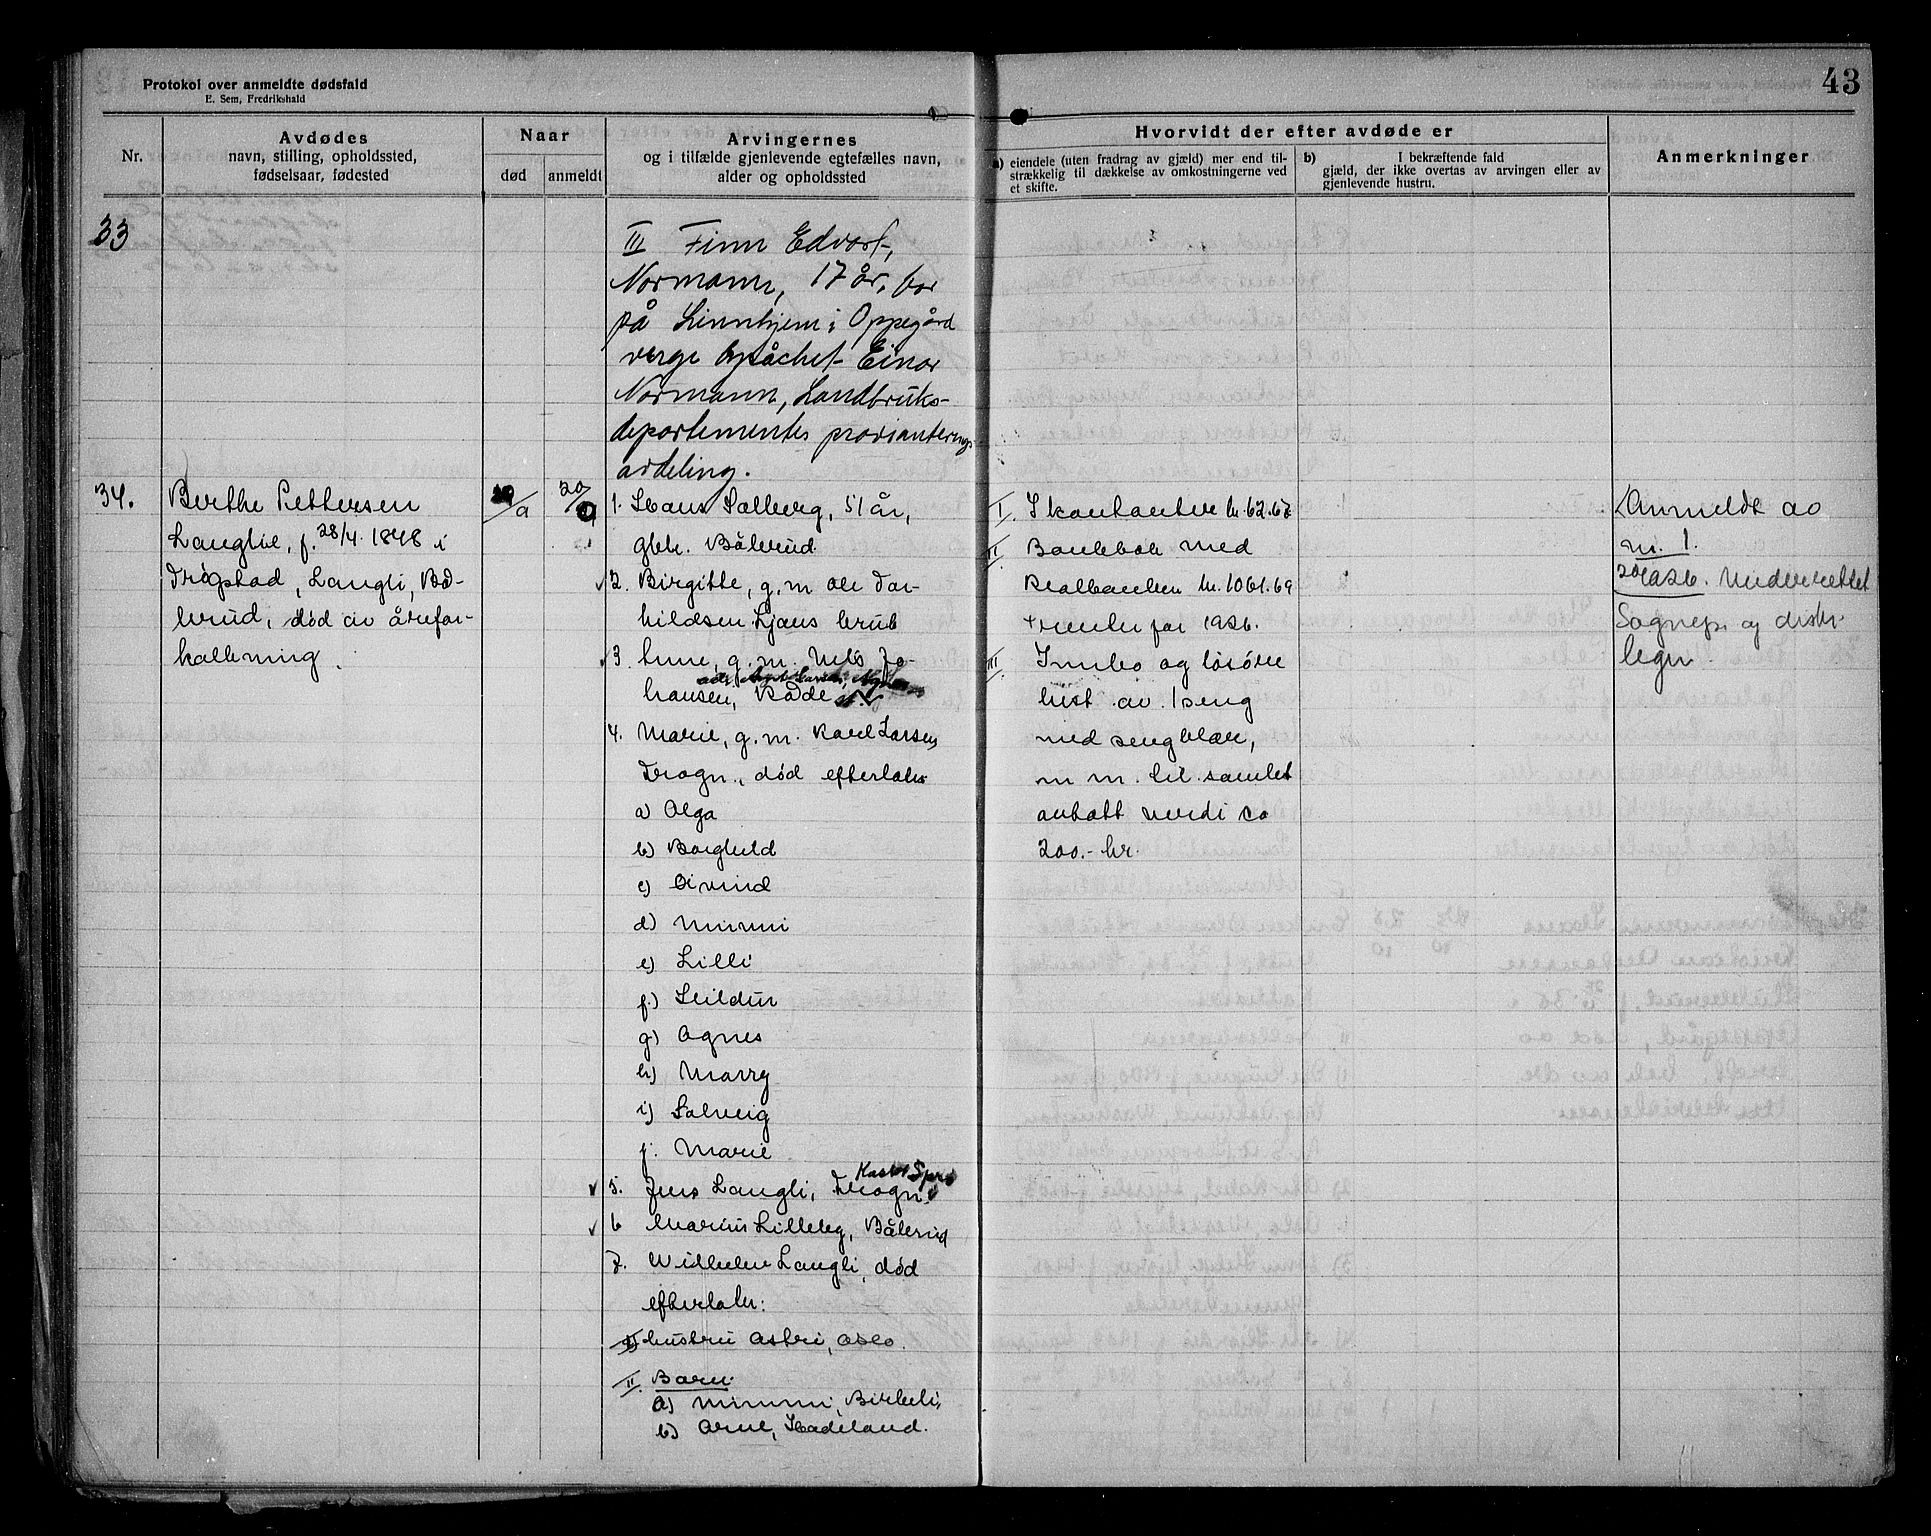 43
Protokol over anmeldte dødsfald
E. Sem, Fredrikshald
Nr.
Avdødes
navn, stilling, opholdssted,
fødselsaar, fødested
Naar
død
anmeldt
Arvingernes
og i tilfælde gjenlevende egtefælles navn,
alder og opholdssted
Hvorvidt der efter avdøde er
a) eiendele (uten fradrag av gjæld) mer end til-
strækkelig til dækkelse av omkostningerne ved
et skifte.
b) I bekræftende fald
gjæld, der ikke overtas av arvingen eller av
gjenlevende hustru.
Anmerkninger
33
III Finn Edvart,
Normann, 17 år, bor
på Linnhjem i Oppegård
verge Einar
Normann, Landbruks-
departementes provianterings
avdeling.
34.
Berthe Pettersen
Langlie, f. 28/4 1848 i
Trøgstad, Langli, Bå-
lerud, død av årefor-
kalkning.
/9
20/
1. Hans Solberg, 51 år,
gbr. Bålerud
2. Birgitte, g.m. Ole Tor-
kildsen Ljans brub
3. Line, g.m. Nils Jo-
hansen, Råde
4. Marie, g.m. Karl Larsen
Drøgn., død efterlater
a) Olga
b) Borghild
c) Øivind
d) Mimmi
e) Lilli
f.) Hildur
g) Agnes
h) Marry
i) Solveig
j. Marie
5. Jens Langli, Drøgn
6 Marius Lilleleg, Bålerud
7. Wilhelm Langli, død
efterlater:
I hustru Astri, Oslo.
II Barn.
a) Mimmi, Birkeli,
b) Arne, Hadeland.
I. I kontanter kr. 62.62
II Bankbok med
Realbanken kr. 1061.69
+ renter for 1926.
III Innbo og løsøre
best av 1 seng
med sengklær,
m m. til samlet
antatt verdi ca
200.- kr.
Anmeldt av
nr. 1.
1926. Underrettet
Sognepr. og distr.
lege.